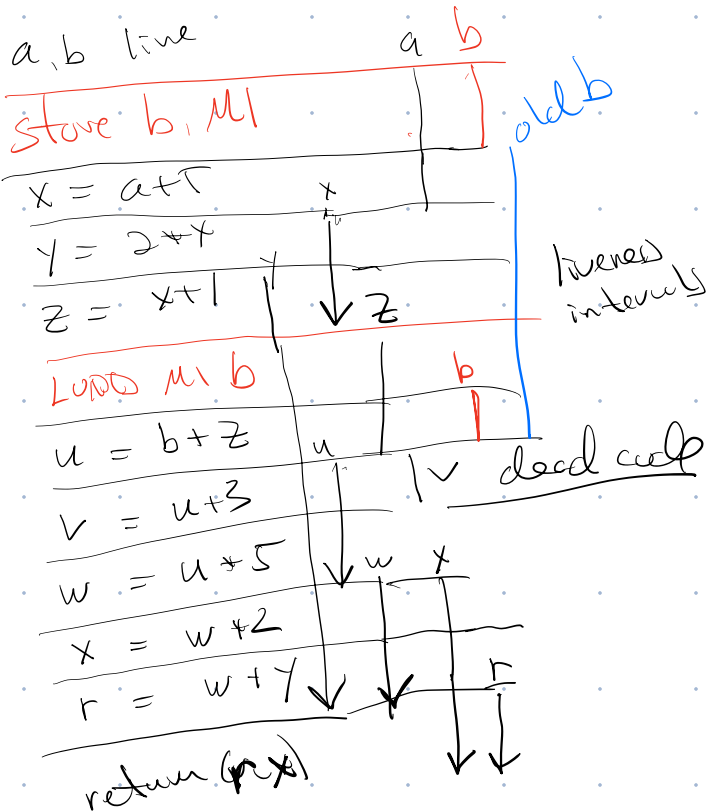 a, b live
a b
store b, M1
old b
x = a+5
x
y = 2*x
y
z = x+1
z
liveness
intervals
LOAD M1 b
b
u = b+z
u
v
dead code
v = u+3
w = u*5
w x
x = w+2
r = w+y
r
return (r, x)